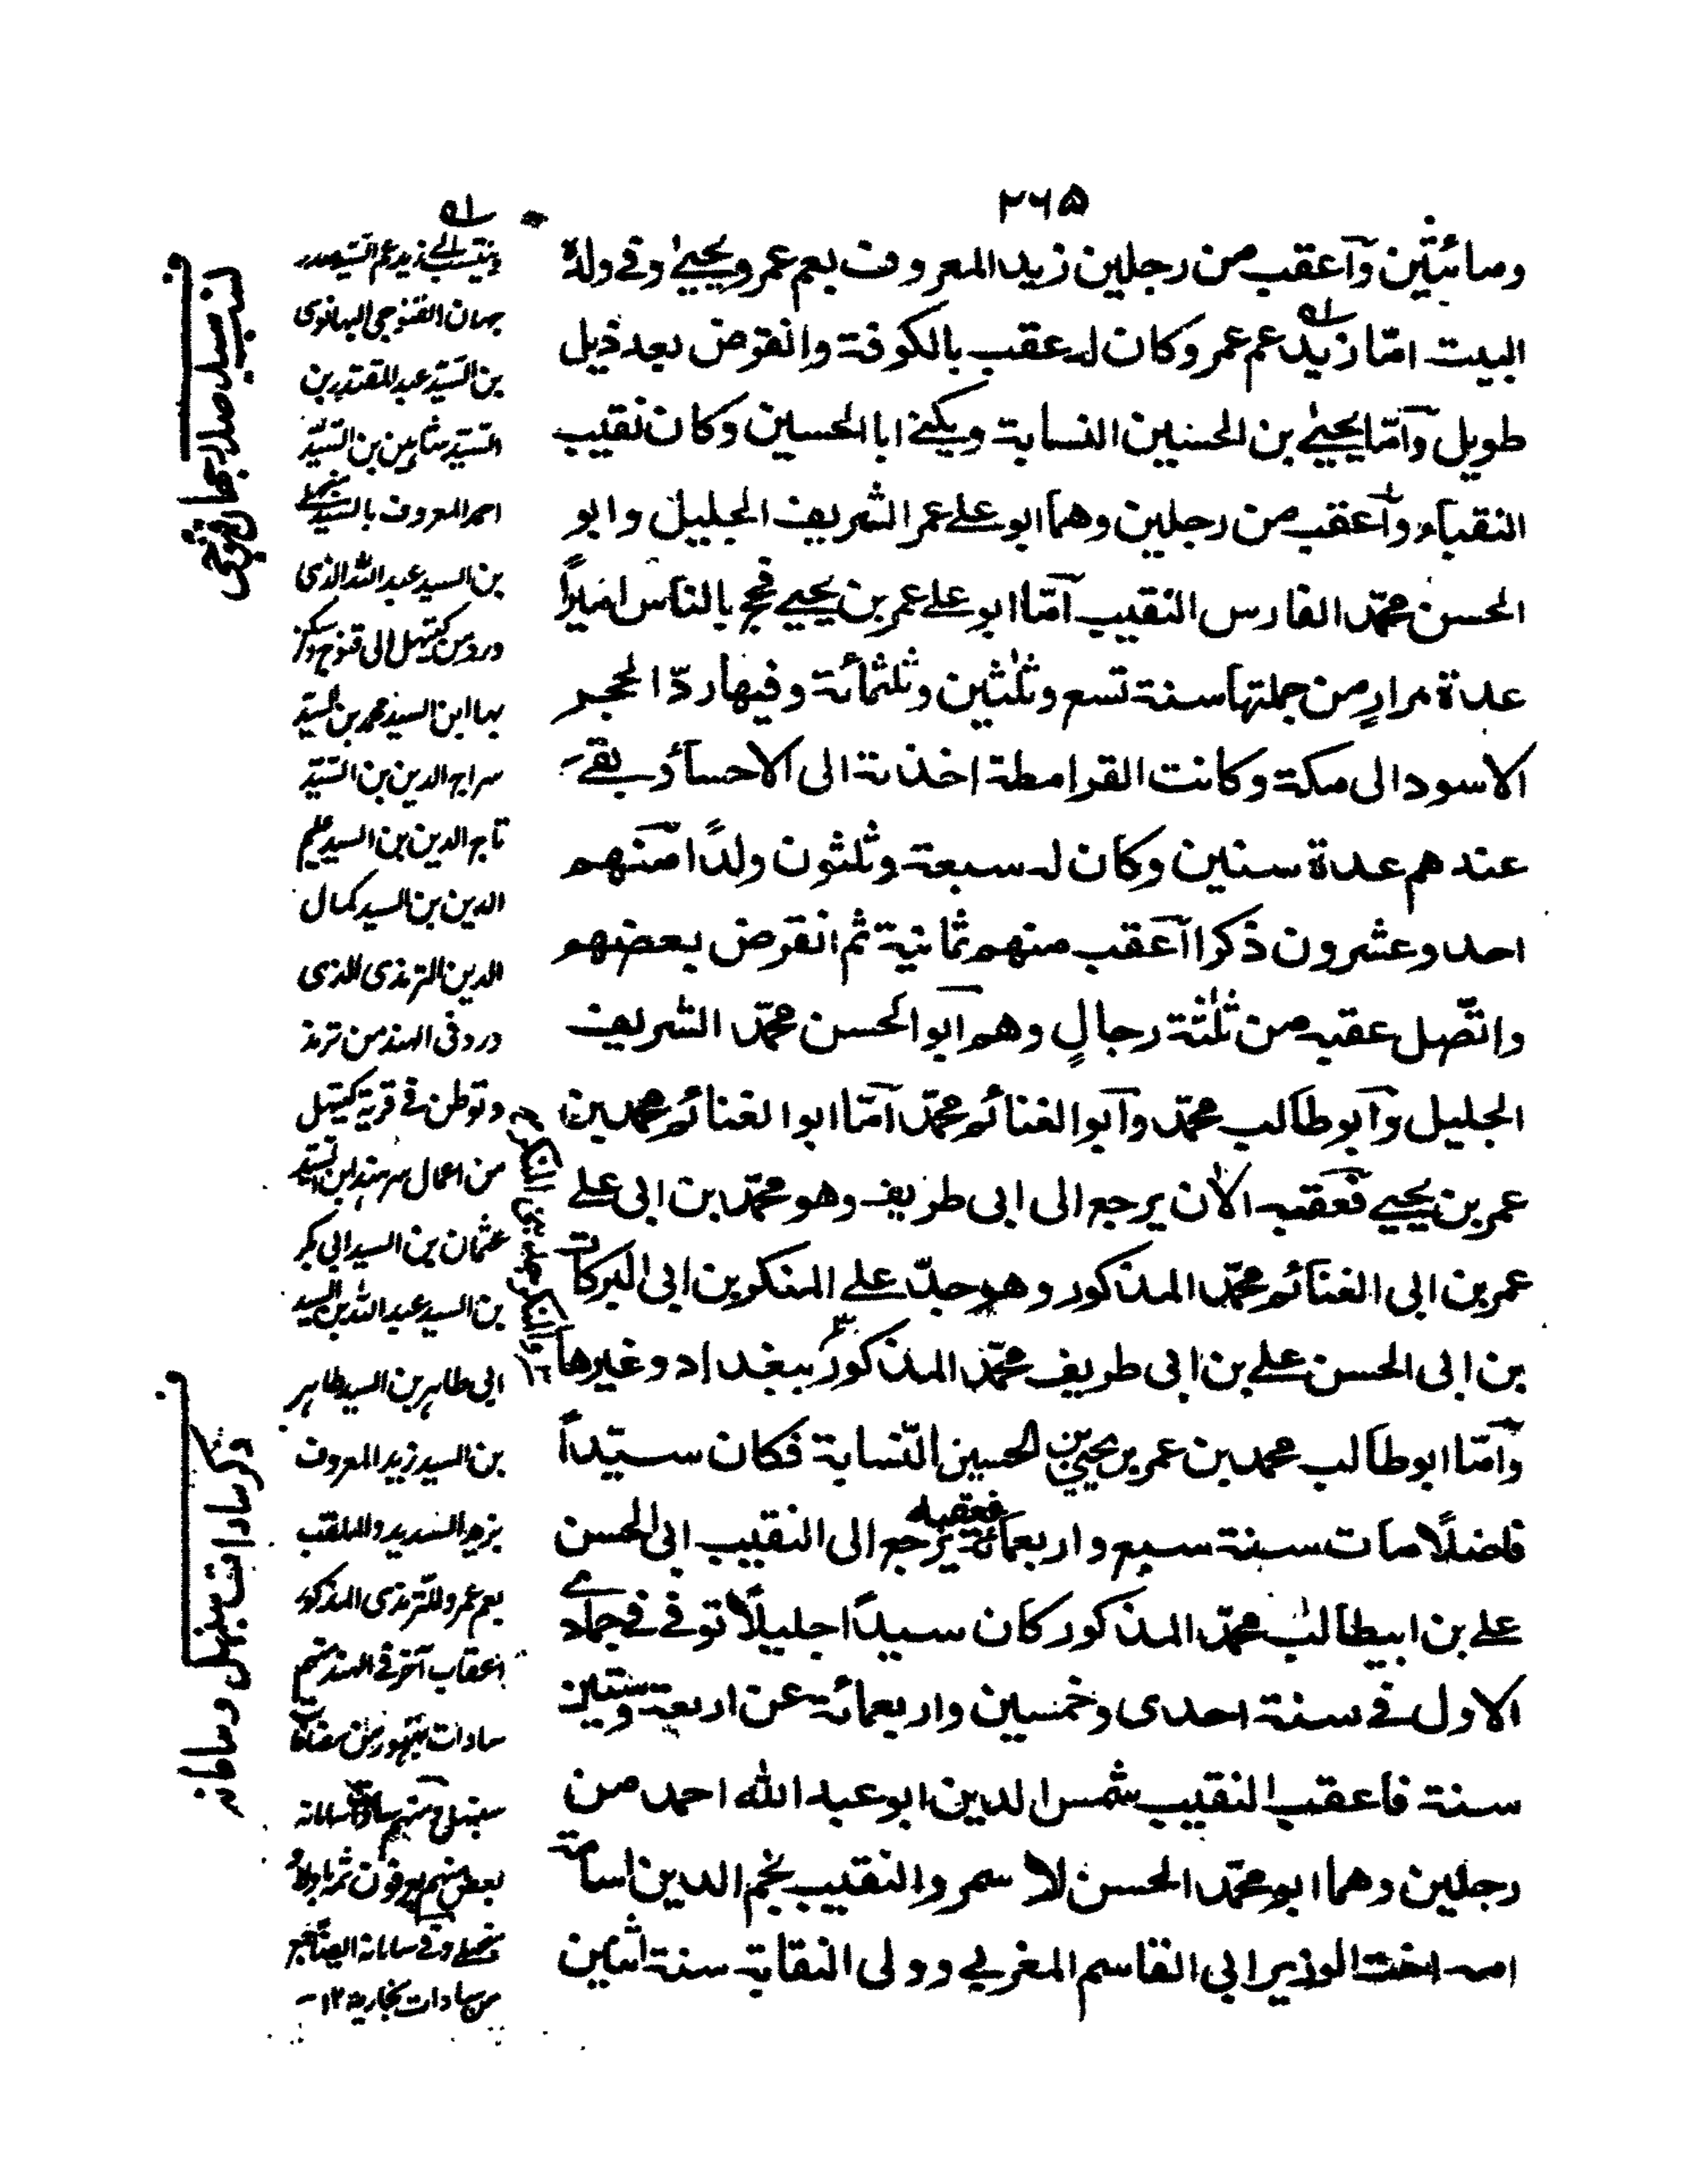 ۲۶۵
ومائتين وأعقب من رجلين زيد المعروف بعم عمر ويحيى وفي ولدة
البيت امّا زيد عم عمر وكان له عقب بالكوفة وانقرض بعد ذيل
طويل وآمّا يحيى بن الحسين النسابة ويكنى ابا الحسين وكان نقيب
النقباء وأعقب من رجلين وهما ابو علي عمر الشريف الجليل وابو
الحسن محمّد الفارس النقيب آمّا ابو علي عمر بن يحيى فحج بالناس اميراً
عدة مرارٍ من جملتها سنة تسع وثلثين وثلثمائة وفيها ردّ الحجر
الاسود الى مكة وكانت القرامطة اخذته الى الاحساء بقي
عندهم عدة سنين وكان له سبعة وثلثون ولدًا منهم
احد وعشرون ذكرا آعقب منهم ثمانية ثم انقرض بعضهم
واتّصل عقبه من ثلثة رجالٍ وهم آبو الحسن محمّد الشريف
الجليل وآبو طالب محمّد وآبو الغنائم محمّد آمّا ابو الغنائم محمد بن
عمر بن يحيى فعقبه الآن يرجع الى ابى طريف وهو محمّد بن ابى علي
عمر بن ابى الغنائم محمّد المذكور وهو جدّ علي المنكر بن ابى البركات
بن ابى الحسن علي بن ابى طريف محمّد المذكور ببغداد وغيرها
وآمّا ابو طالب محمد بن عمر بن يحيى بن الحسين النّسابة فكان سيّداً
فاضلًا مات سنة سبع واربعمائة فعقبه يرجع الى النقيب ابى الحسن
علي بن ابيطالب محمّد المذكور كان سيدًا جليلًا توفي في جمادى
الاول في سنة احدى وخمسين واربعمائة عن اربعة وستين
سنة فاعقب النقيب شمس الدين ابو عبد الله احمد من
رجلين وهما ابو محمّد الحسن الاسمر والنقيب نجم الدين اسامة
امه اخت الوزير ابى القاسم المغربي وولى النقابة سنة اثنين
وينتسب الى زيد عم السيد صدر
جهان القنوجي البهانوى
بن السّيد عبد المقتدر بن
السّيد شاهين بن السّيّد
احمد المعروف بالسيد
بن السيد عبد الله الذى
ورد من كيتهل الى قنوج وسكن
بها ابن السيد محمد بن السيّد
سراج الدين بن السّيّد
تاج الدين بن السيد عليم
الدين بن السيد كمال
الدين الترمذى الذى
ورد فى الهند من ترمذ
وتوطن في قرية كيتهل
من اعمال سرهند ابن السيّد
عثمان بن السيد ابى بكر
بن السيد عبد الله بن السيد
ابى طاهر بن السيد طاهر
بن السيد زيد المعروف
بزيد السديد والملقب
بعم عمر وللترمذى المذكور
اعقاب آخر في الهند منهم
سادات
سنبهل ومنهم سادات سامانه
بعض منهم يعرفون
وفي سامانه ايضا
من سادات بخارية ١٢
نسب سيد صدر جهان قنوجى
ذكر سادات سنبهل وسامانه